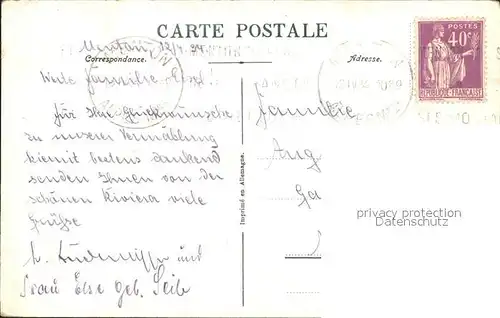 CARTE POSTALE
Menton, 12/4. 34
Correspondance.
Adresse.
POSTES
40c
RÉPUBLIQUE FRANÇAISE
Werte Familie
Für Ihre Glückwünsche
zu unserer Vermählung
hiemit bestens dankend
senden Ihnen von der
schönen Riviera viele
Grüße
und
Frau Else geb. Seib
Imprimé en Allemagne.
Familie
Aug
Ga
privacy protection
AnsichtskartenVersand.com